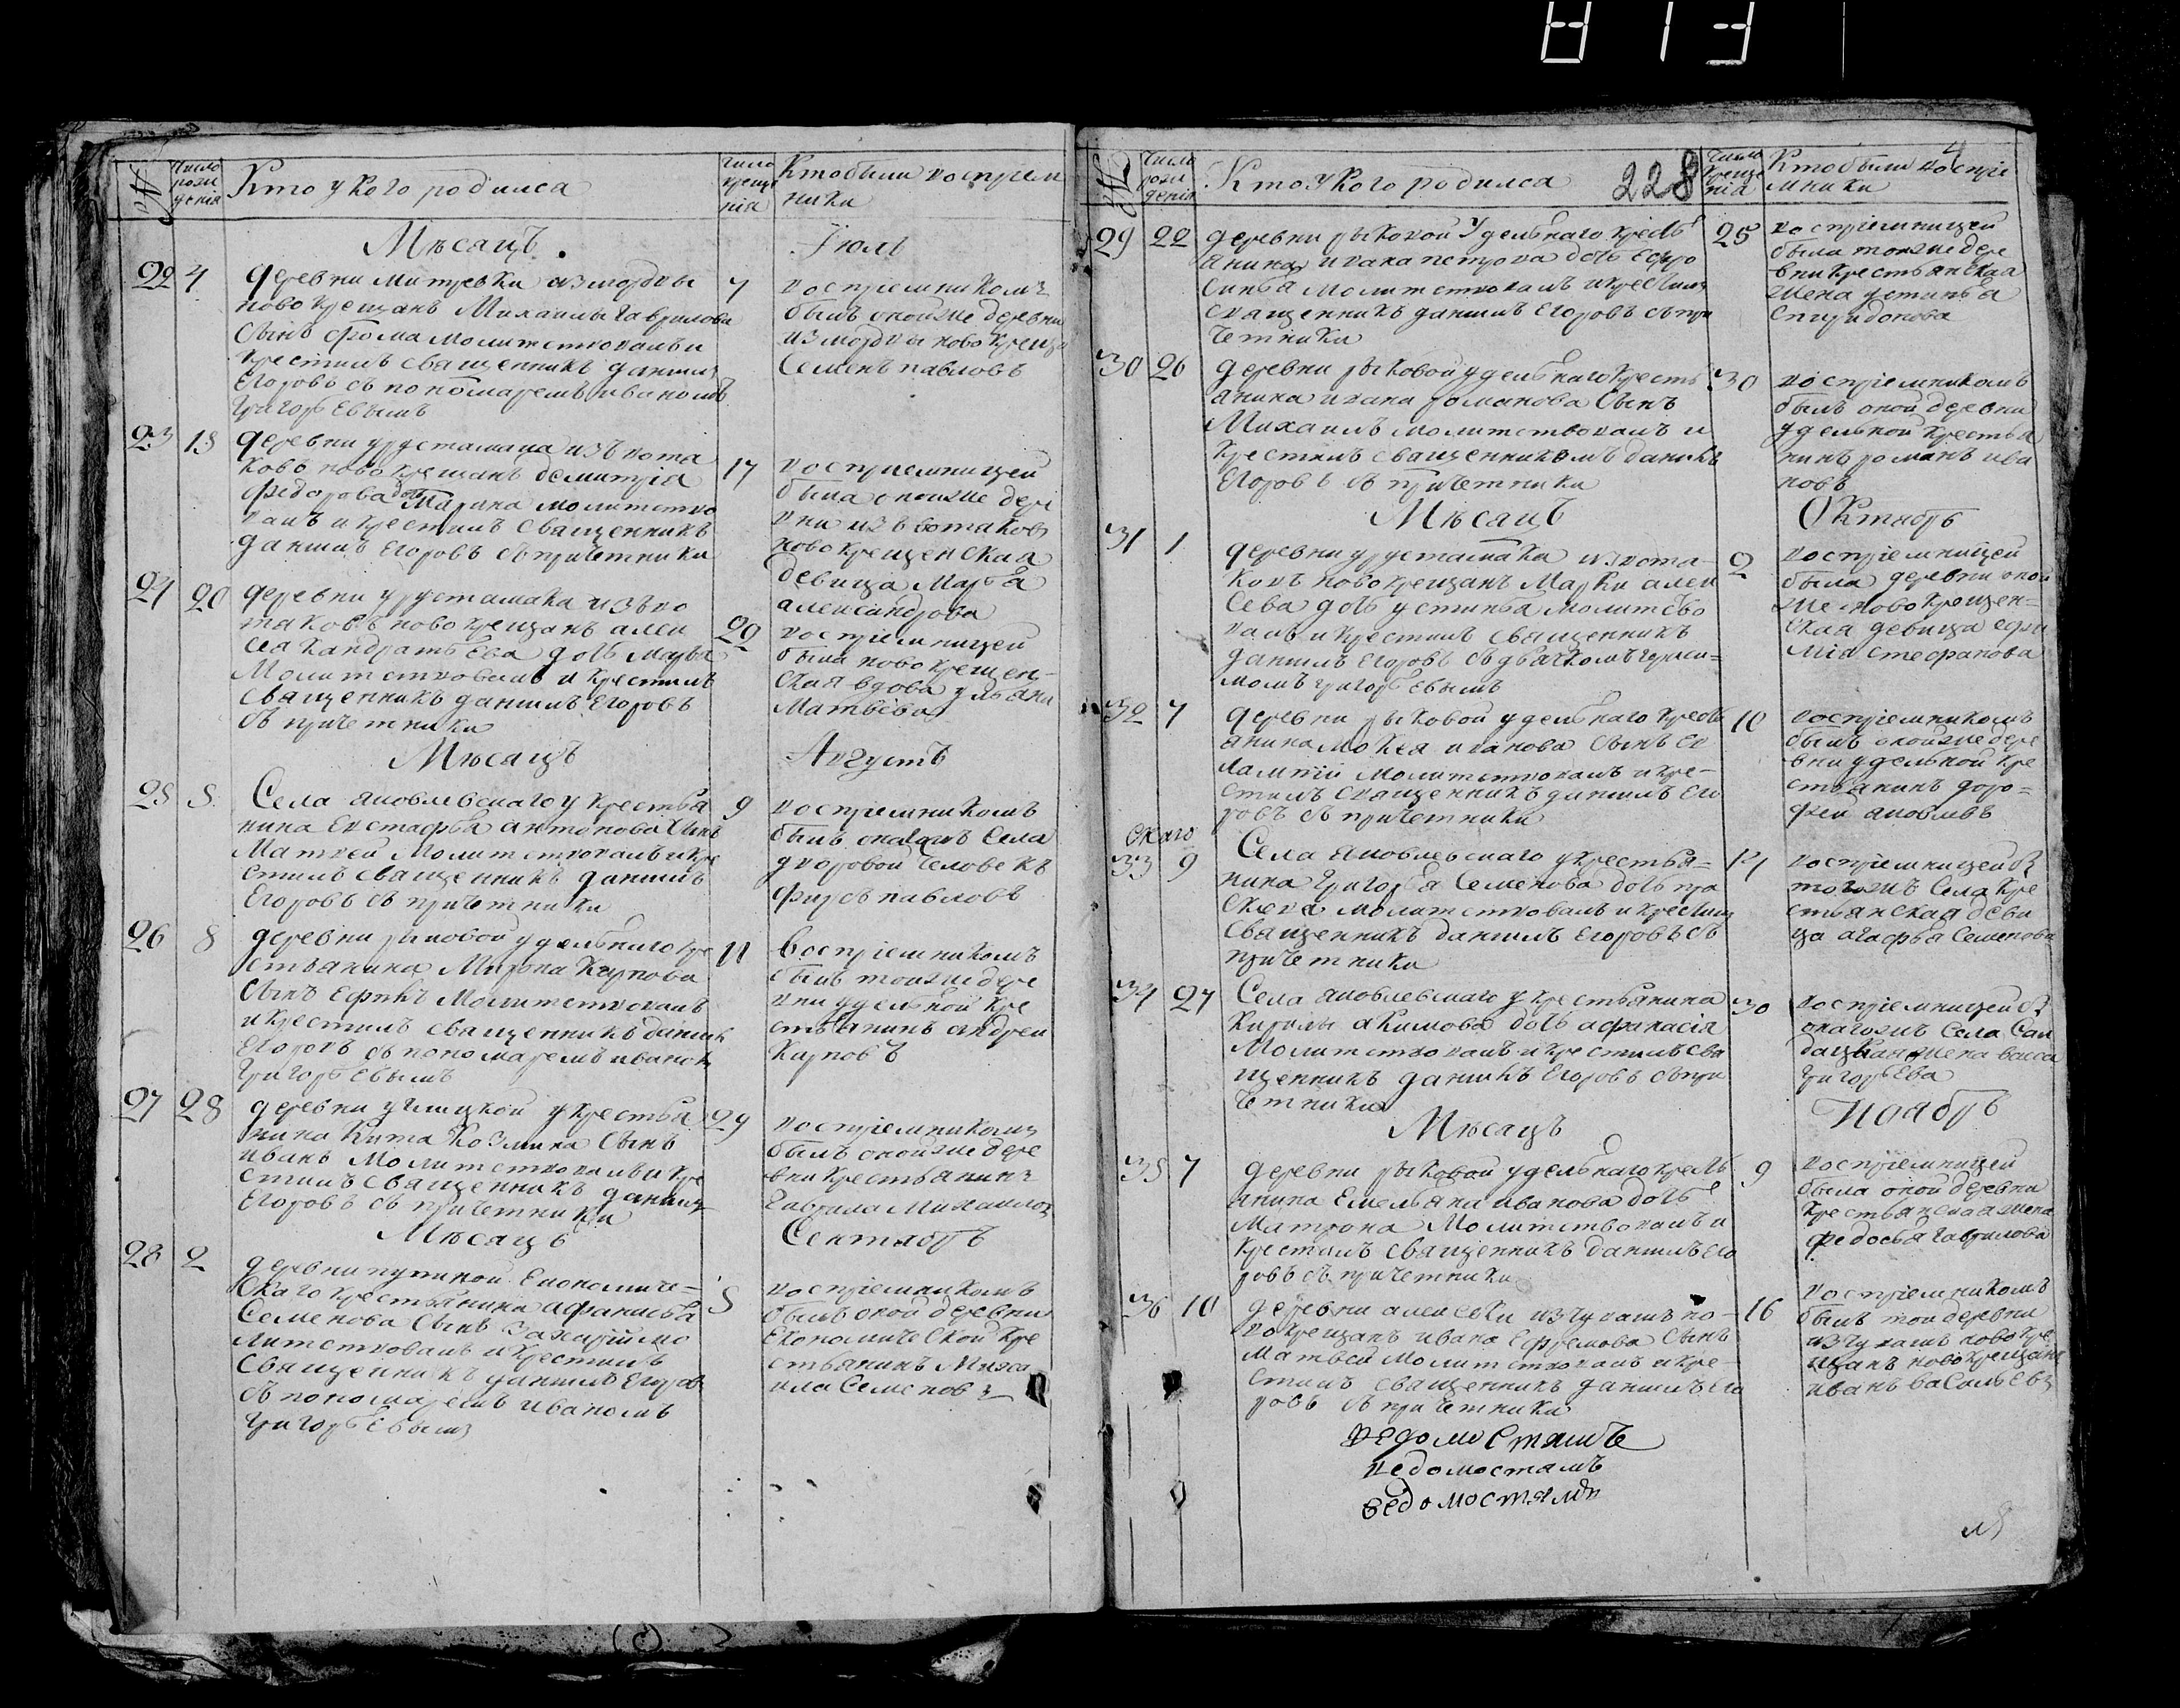 813
№
Число рожденія
Кто у кого родился
число крещенія
Кто были восприемники
Мѣсяцъ
Іюль
22 4
деревни Митревки измордвы
новокрещанъ Михаилы гаврилова
сынъ фома молитствовалъ и
крестилъ священникъ данилъ
Егоровъ съ пономаремъ иваномъ
григорьевымъ
7
восприемникомъ
былъ оной же деревни
измордвы новокреща
Семенъ павловъ
23 15
деревни урустамака изъ вотя
ковъ новокрещанъ демитрія
федорова дочь Марина молитство
валъ и крестилъ священникъ
данилъ Егоровъ съ причетники
17
восприемницей
была оной же дере
вни изъ вотяковъ
новокрещенская
девица Марья
александрова
24 20
деревни урустамака изъ во
тяковъ новокрещанъ алек
сея кандратьева дочь Марья
Молитствовалъ и крестилъ
священникъ данилъ Егоровъ
съ причетники
22
восприемницей
была новокрещен-
ская вдова ульяна
Матвеева
Мѣсяцъ
Августъ
25 5
Села яковлевскаго у крестья
нина Евстафья антонова сынъ
Матвей Молитствовалъ и кре
стилъ священникъ данилъ
Егоровъ съ причетники
9
восприемникомъ
былъ онагожъ Села
дворовой человекъ
фирсъ павловъ
26 8
деревни рыковой удельнаго кре
стьянина Мирона Карпова
сынъ Ефимъ Молитствовалъ
и крестилъ священникъ данилъ
Егоровъ съ пономаремъ иваномъ
Григорьевымъ
11
восприемникомъ
былъ тоиже дере
вни удельной кре
стьянинъ андреи
Карповъ
27 28
деревни у крестья
нина Кита Козмина сынъ
иванъ Молитствовалъ и кре
стилъ священникъ данилъ
Егоровъ съ причетники
29
восприемникомъ
былъ оной же дере
вни крестьянинъ
Гаврила Михаиловъ
Мѣсяцъ
Сентябрь
28 2
деревни Економиче-
скаго крестьянина афанасья
Семенова сынъ Захарій мо
литствовалъ и крестилъ
священникъ данилъ Егоровъ
съ пономаремъ иваномъ
григорьевымъ
5
восприемникомъ
былъ оной деревни
Економической кре
стьянинъ Миха
ила Семеновъ
№
Число рожденія
Кто у кого родился
228
число крещенія
Кто были воспріемники
29 22
деревни рыковой удельнаго кресть
янина ивана петрова дочь Ефро
синья Молитствовалъ и крестилъ
священникъ данилъ Егоровъ съ при
четники
25
воспріемницей
была тоиже дере
вни крестьянская
жена устинья
Спиридонова
30 26
деревни рыковой удельнаго кресть
янина ивана романова сынъ
Михаилъ молитствовалъ и
крестилъ священникомъ данилъ
Егоровъ съ причетники
30
воспріемникомъ
былъ оной деревни
удельной крестья
нинъ романъ ива
новъ
Мѣсяцъ
Октябрь
31 1
деревни урустамака извотя-
ковъ новокрещанъ Марки алек
сева дочь устинья молитство
валъ и крестилъ священникъ
данилъ Егоровъ съ дьячкомъ гераси-
момъ григорьевымъ
2
воспріемницей
была деревни оной
же новокрещен-
ская девица ефи
мія стефанова
32 7
деревни рыковой удельнаго кресть
янина Мокея иванова сынъ Ев
лампій молитствовалъ и кре-
стилъ священникъ данилъ Его
ровъ съ причетники
10
воспріемникомъ
былъ оной же дере
вни удельной кре
стьянинъ доро-
фей яковлевъ
скаго
33 9
Села яковлевскаго у крестья-
нина Григорья Семенова дочь пра
скева молитствовалъ и крестилъ
священникъ данилъ Егоровъ съ
причетники
14
воспріемницей
тогожъ Села кре
стьянская деви
ца агафья Семенова
34 27
Села яковлевскаго у крестьянина
Кирилы акимова дочь афанасія
Молитствовалъ и крестилъ свя
щенникъ данилъ Егоровъ съ при
четники
30
воспріемницей
онагожъ Села Сол
дацкая жена васса
Григорьева
Мѣсяцъ
Ноябрь
35 7
деревни рыковой удельнаго кресть
янина Емельяна иванова дочь
Матрона Молитствовалъ и
крестилъ священникъ данилъ Его
ровъ съ причетники
9
воспріемницей
была оной деревни
крестьянская жена
федосья гаврилова
36 10
деревни алексевки изчувашъ но-
вокрещанъ ивана Ефремова сынъ
Матвей Молитствовалъ и кре-
стилъ священникъ данилъ Его
ровъ съ причетники
16
воспріемникомъ
былъ той деревни
изчувашъ новокре
щанъ новокрещанъ
иванъ васильевъ
ведомостямъ
ведомостямъ
ведомостямъ